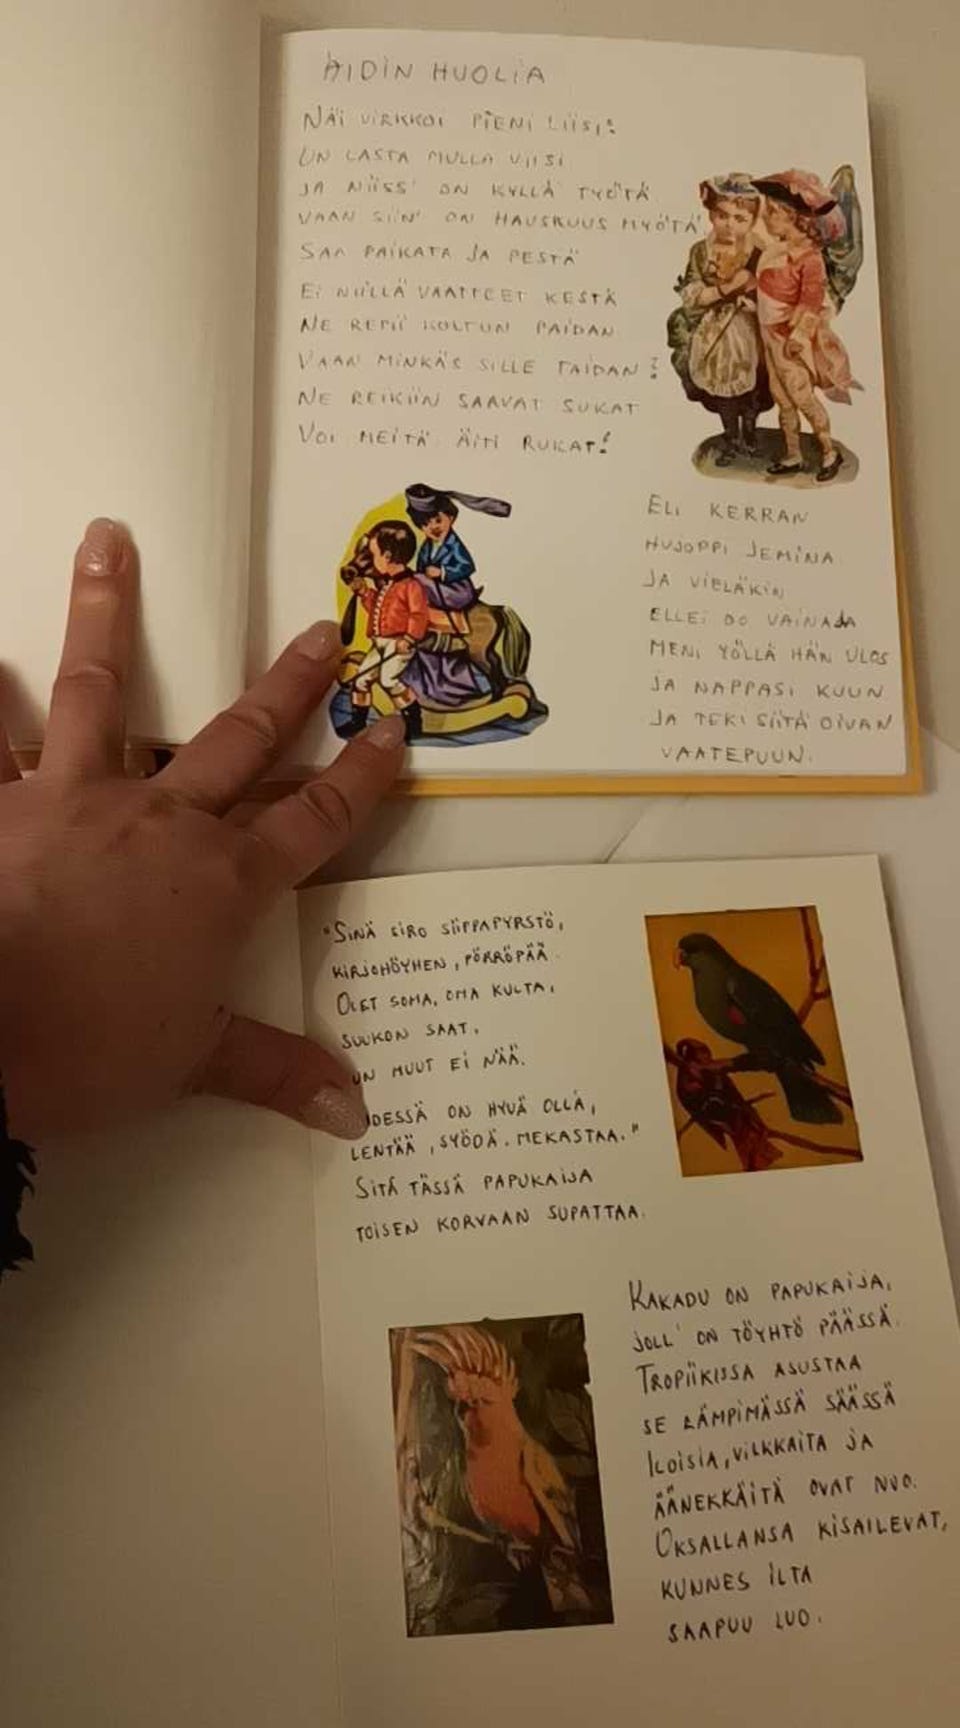 ÄIDIN HUOLIA
NÄI VIRKKOI PIENI LIISI:
ON LASTA MULLA VIISI
JA NIISS' ON KYLLÄ TYÖTÄ
VAAN SIIN' ON HAUSKUUS MYÖTÄ
SAA PAIKATA JA PESTÄ
EI NIILLÄ VAATTEET KESTÄ
NE REPII KOLTUN PAIDAN
VAAN MINKÄS SILLE TAIDAN?
NE REIKIIN SAAVAT SUKAT
VOI MEITÄ ÄITI RUKAT!
ELI KERRAN
HUJOPPI JEMINA
JA VIELÄKIN
ELLEI OO VAINAJA
MENI YÖLLÄ HÄN ULOS
JA NAPPASI KUUN
JA TEKI SIITÄ OIVAN
VAATEPUUN.
"SINÄ SIRO SIIPPAPYRSTÖ,
KIRJOHÖYHEN, PÖRRÖPÄÄ.
OLET SOMA, OMA KULTA,
SUUKON SAAT,
UN MUUT EI NÄÄ.
DESSÄ ON HYVÄ OLLA,
LENTÄÄ, SYÖDÄ. MEKASTAA."
SITÄ TÄSSÄ PAPUKAIJA
TOISEN KORVAAN SUPATTAA.
KAKADU ON PAPUKAIJA,
JOLL' ON TÖYHTÖ PÄÄSSÄ.
TROPIIKISSA ASUSTAA
SE LÄMPIMÄSSÄ SÄÄSSÄ
ILOISIA, VILKKAITA JA
ÄÄNEKKÄITÄ OVAT NUO.
OKSALLANSA KISAILEVAT,
KUNNES ILTA
SAAPUU LUO.